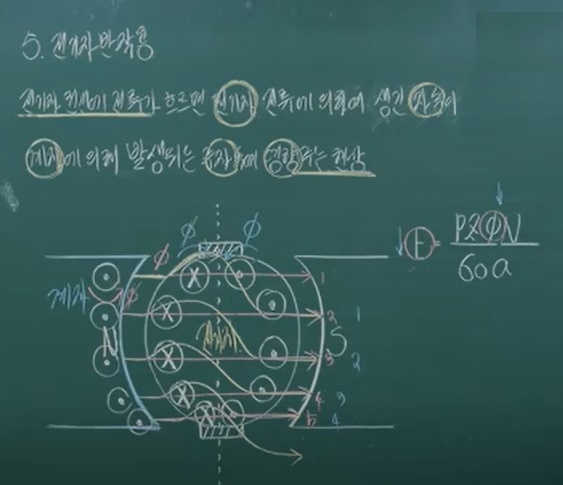 5. 전기자 반작용
전기자 권선에 전류가 흐르면 전기자 전류에 의하여 생긴 자속이
계자에 의해 발생되는 주자속에 영향 주는 현상
E = PZΦN
60a
Φ Φ
Φ
계자 Φ
N
전기자
S
1
2 1
3 2
4 3
5 4